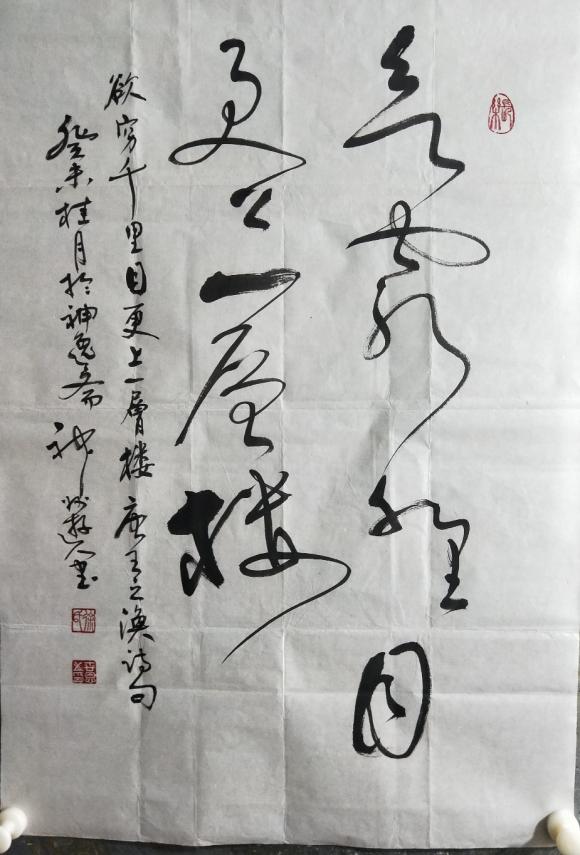 欲穷千里目
更上一层楼
欲穷千里目更上一層楼 唐王之涣诗句
癸未桂月於神逸斋 神州游人書